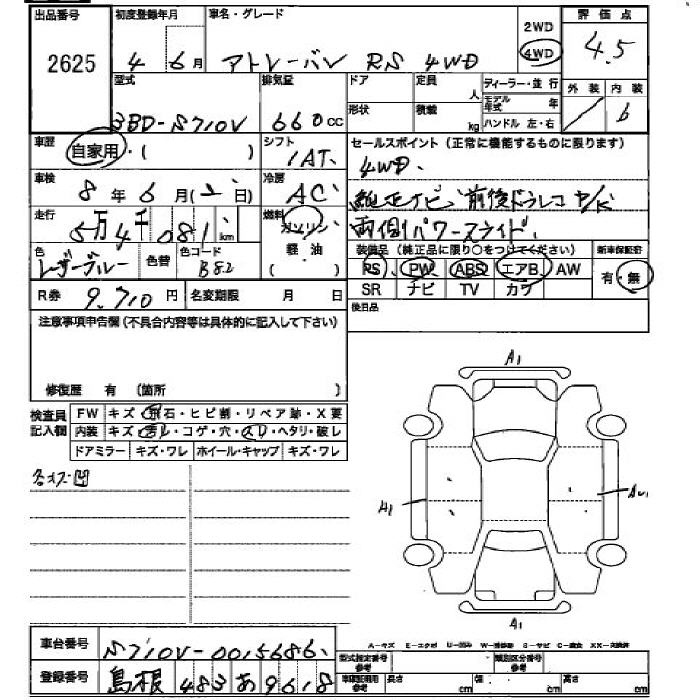 出品番号 初度登録年月 車名・グレード 2WD 評価点
2625 4 6月 アトレーバン RS 4WD 4WD 4.5
型式 排気量 ドア 定員 人 ディーラー・並行 外装 内装
3BD-S710V 660cc 形状 積載 kg モデル年式 年 ハンドル 左・右 6
車歴 自家用・( ) シフト 1AT セールスポイント(正常に機能するものに限ります)
4WD、
車検 8年6月( )日 冷房 AC 純正ナビ、前後ドラレコ
走行 5万4千081km 燃料 ガソリン 軽・油 両側パワースライド、
色 レーザーブルー 色替 色コード B82 装備品(純正品に限り○をつけてください) 新車保証書
PS PW ABS エアB AW 有・無
R券 9,710円 名変期限 月 日 SR ナビ TV カワ
注意事項申告欄(不具合内容等は具体的に記入して下さい) 後日品
修復歴 有 (箇所 )
検査員記入欄 FW キズ・飛石・ヒビ割・リペア跡・X要
内装 キズ・ヨゴレ・コゲ・穴・スレ・ヘタリ・破レ
ドアミラー キズ・ワレ ホイール・キャップ キズ・ワレ
A1
A1
A1
車台番号 S710V-0015686
A-キズ E-エクボ U-凹み W-補修跡 S-サビ C-腐食 XX-交換済
型式指定番号 参考 類別区分番号 参考
登録番号 島根 483 あ 9618 車庫証明用 参考 長さ cm 幅 cm 高さ cm